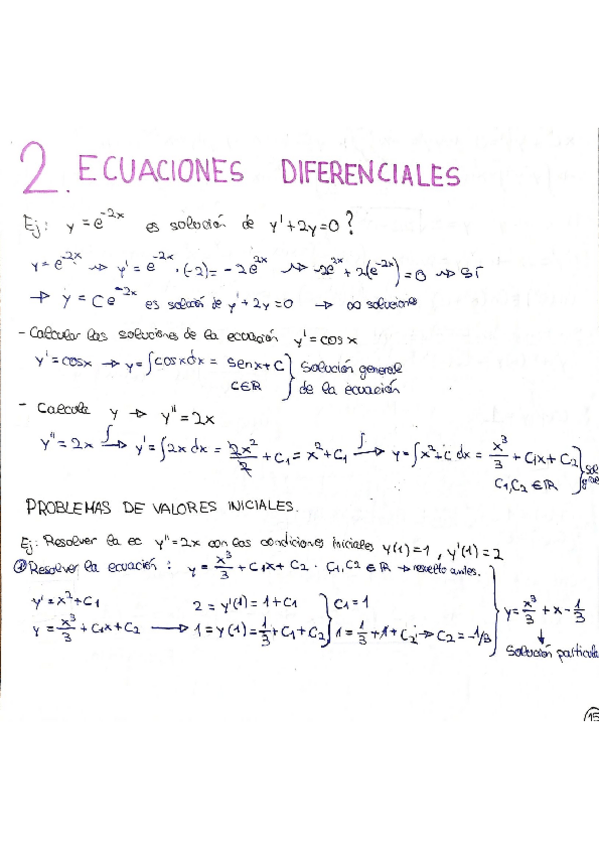 2. ECUACIONES DIFERENCIALES
Ej: y = e^-2x es solución de y' + 2y = 0?
y = e^-2x ⇝ y' = e^-2x · (-2) = -2e^-2x ⇝ -2e^-2x + 2(e^-2x) = 0 ⇝ SÍ
→ y = Ce^-2x es solución de y' + 2y = 0 → ∞ soluciones
- Calcular las soluciones de la ecuación y' = cos x
y' = cosx → y = ∫cosxdx = senx + C } Solución general
C∈ℝ de la ecuación
- Calcula y → y'' = 2x
y'' = 2x ∫→ y' = ∫2x dx = 2x²/2 + C1 = x² + C1 ∫→ y = ∫x² + C dx = x³/3 + C1x + C2 } sol
C1, C2 ∈ ℝ
PROBLEMAS DE VALORES INICIALES.
Ej: Resolver la ec y'' = 2x con las condiciones iniciales y(1) = 1, y'(1) = 2
① Resolver la ecuación: y = x³/3 + C1x + C2 · C1, C2 ∈ ℝ → resuelto antes.
y' = x² + C1 2 = y'(1) = 1 + C1 } C1 = 1
y = x³/3 + C1x + C2 → 1 = y(1) = 1/3 + C1 + C2 } 1 = 1/3 + 1 + C2 → C2 = -1/3 } y = x³/3 + x - 1/3
↓
Solución particula
15